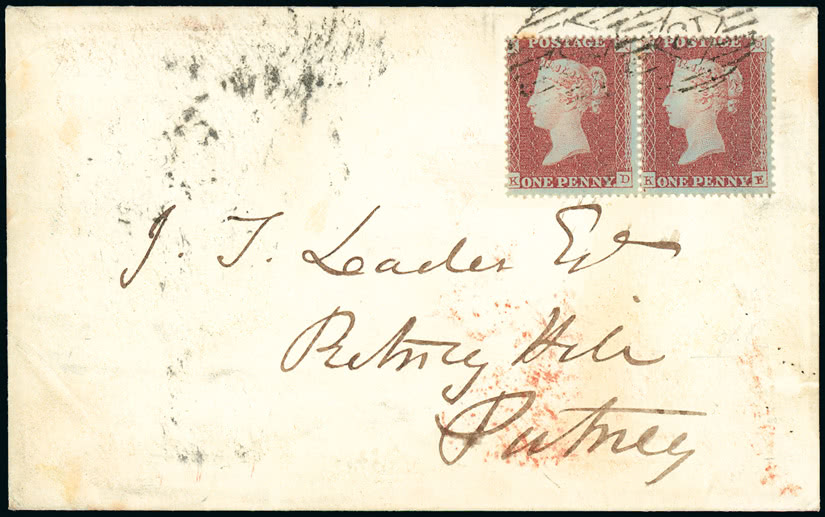 POSTAGE POSTAGE
K ONE PENNY D K ONE PENNY E
J. T. Leader Esqr
Putney Hill
Putney